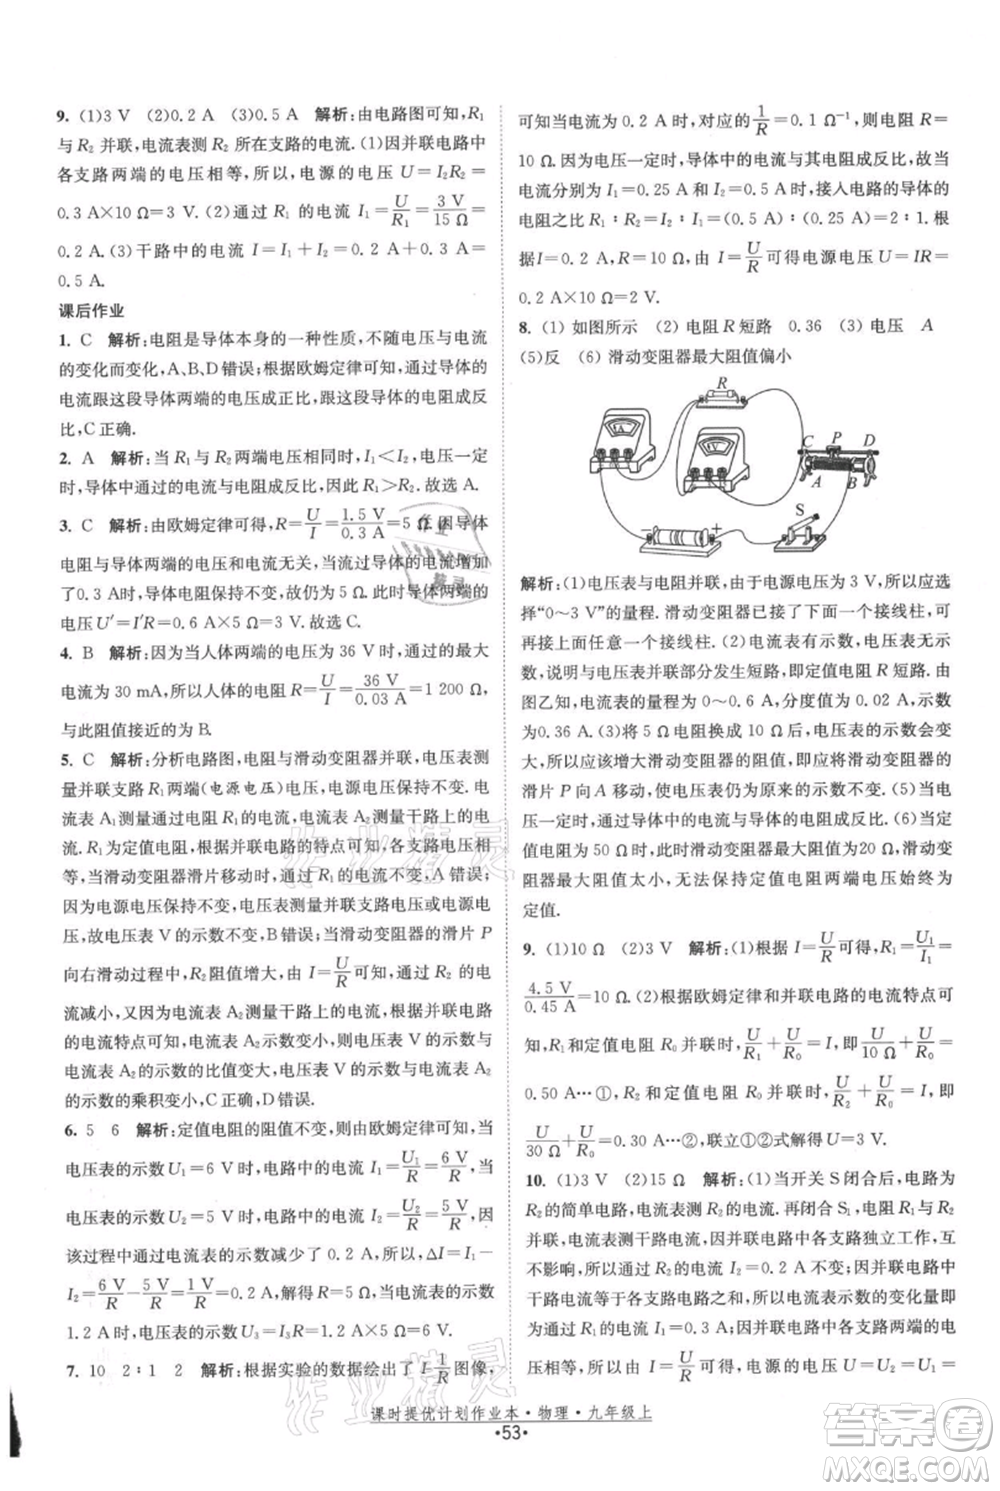 9. (1)3 V　(2)0.2 A　(3)0.5 A　解析:由电路图可知,R₁
与 R₂ 并联,电流表测 R₂ 所在支路的电流.(1)因并联电路中
各支路两端的电压相等,所以,电源的电压 U＝I₂R₂＝
0.3 A×10 Ω＝3 V. (2)通过 R₁ 的电流 I₁＝U/R₁＝3 V/15 Ω＝
0.2 A. (3)干路中的电流 I＝I₁＋I₂＝0.2 A＋0.3 A＝
0.5 A.
课后作业
1. C　解析:电阻是导体本身的一种性质,不随电压与电流
的变化而变化,A、B、D 错误;根据欧姆定律可知,导体的
电流跟这段导体两端的电压成正比,跟导体的电阻成反
比,C 正确.
2. A　解析:当 R₁ 与 R₂ 两端电压相同时,I₁＜I₂,电压一定
时,电路中的电流与电阻成反比,因此 R₁＞R₂.故选 A.
3. C　解析:由欧姆定律可得,R＝U/I＝1.5 V/0.3 A＝5 Ω,因导体
电阻与导体两端的电压和电流的大小无关,所以电流增大
了 0.3 A 时,导体的电阻仍为 5 Ω 不变,此时导体两端的
电压 U′＝I′R＝0.6 A×5 Ω＝3 V.故选 C.
4. B　解析:因为当人体两端的电压为 36 V 时,通过的最大
电流为 30 mA,所以人体的电阻 R＝U/I＝36 V/0.03 A＝1 200 Ω,
与此阻值接近的为 B.
5. C　解析:分析电路图,定值电阻与滑动变阻器并联,电压表测量
并联支路 R₁ 两端(电源电压)的电压,电流表 A₂ 测量干路中的电流,
电流表 A₁ 测量通过 R₁ 的电流.因为电源电压保持不变,
R₁ 为定值电阻,根据并联电路的特点可知,各支路两端电
压相等,当滑动变阻器滑片移动时,通过 R₁ 的电流不变,
故电流表 A₁ 的示数不变,A 错误;
因为电源电压保持不变,电压表测量并联支路电压(电源电
压),故电压表 V 的示数不变,B 错误;当滑动变阻器的滑片 P
向右滑动过程中,R₂ 阻值增大,由 I＝U/R 可知,通过 R₂ 的电
流减小,又因为电流表 A₂ 测量干路上的电流,根据并联电路
的电流特点可知,电流表 A₂ 示数变小,则电压表示数与
电流表 A₂ 的示数的比值变大,电压表 V 示数与电流表 A₂
的示数的乘积变小,C 正确,D 错误.故选 C.
6. 5　6　解析:定值电阻的阻值不变,则由欧姆定律可知,当
电压表的示数 U₁＝6 V 时,电路中的电流 I₁＝U₁/R＝6 V/R;当
电压表示数 U₂＝5 V 时,电路中的电流 I₂＝U₂/R＝5 V/R,因
该过程中通过电流表的示数减少了 0.2 A,所以,ΔI＝I₁－
I₂＝6 V/R－5 V/R＝0.2 A,解得 R＝5 Ω,当电流表的示数为
1.2 A 时,电压表的示数 U₃＝I₃R＝1.2 A×5 Ω＝6 V.
7. 10　2∶1　2　解析:根据实验的数据绘出了 I-1/R 图像,
可知当电流为 0.2 A 时,对应的 1/R＝0.1 Ω⁻¹,则电阻 R＝
10 Ω.因为电压一定时,导体中的电流与其电阻成反比,故当
电流分别为 I₁＝0.25 A 与 I₂＝0.5 A 时,接入电路的导体的
电阻之比 R₁∶R₂＝I₂∶I₁＝(0.5 A)∶(0.25 A)＝2∶1.根
据I＝0.2 A, R＝10 Ω,由 I＝U/R 可得电源电压 U＝IR＝
0.2 A×10 Ω＝2 V.
8. (1) 如图所示　(2) 电阻 R 短路　0.36　(3) 电压　A
(5)反　(6) 滑动变阻器最大阻值偏小
R
A
C P D
A B
S
－ ＋
解析:(1)电压表与电阻并联,由于电源电压为 3 V,所以应选
择“0～3 V”的量程.滑动变阻器已接了下面一个接线柱,可
再接上面任意一个接线柱. (2)电流表有示数,电压表无示
数,说明与电压表并联部分发生短路,即定值电阻 R 短路.
由图乙知,电流表的量程为 0～0.6 A,分度值为 0.02 A,示数
为0.36 A. (3)将 5 Ω 的电阻换成 10 Ω 后,电压表示数会变
大,所以应增大滑动变阻器的阻值,即应将滑动变阻器的
滑片 P 向 A 移动,使电压表仍为原来的示数不变. (5)当
电压一定时,通过导体中的电流与导体的电阻成反比. (6)当
定值电阻为 50 Ω 时,由于滑动变阻器最大阻值20 Ω,滑动
变阻器最大阻值偏小,无法保持定值电阻两端电压始终为
定值.
9. (1)10 Ω　(2)3 V　解析:(1)根据 I＝U/R 可得,R₁＝U₁/I₁＝
4.5 V/0.45 A＝10 Ω. (2)根据欧姆定律和并联电路的电流特点可
知,R₁ 和定值电阻 R₀ 并联时,U/R₁＋U/R₀＝I,即 U/10 Ω＋U/R₀＝
0.50 A…①,R₂ 与定值电阻 R₀ 并联时,U/R₂＋U/R₀＝I,即
U/30 Ω＋U/R₀＝0.30 A…②,联立①②式解得 U＝3 V.
10. (1)3 V　(2)15 Ω　解析:(1)当开关 S 闭合后,电路为
R₂ 的简单电路,电流表测电路中的电流.再闭合 S₁,R₁ 与 R₂
并联,电流表测干路电流.因并联电路中各支路独立工作,互
不影响,所以,通过 R₂ 的电流 I₂＝0.2 A,因并联电路中
干路电流等于各支路电流之和,所以,电流表示数的变化量
即为通过 R₁ 的电流,则 I₁＝0.3 A,因并联电路中各支路两
端电压相等,所以,由 I＝U/R 可得,电源电压 U＝U₂＝U₁＝
课时提优计划作业本·物理·九年级上
·53·
作业精灵
作业精灵
作业精灵
答案圈
MXQE.COM